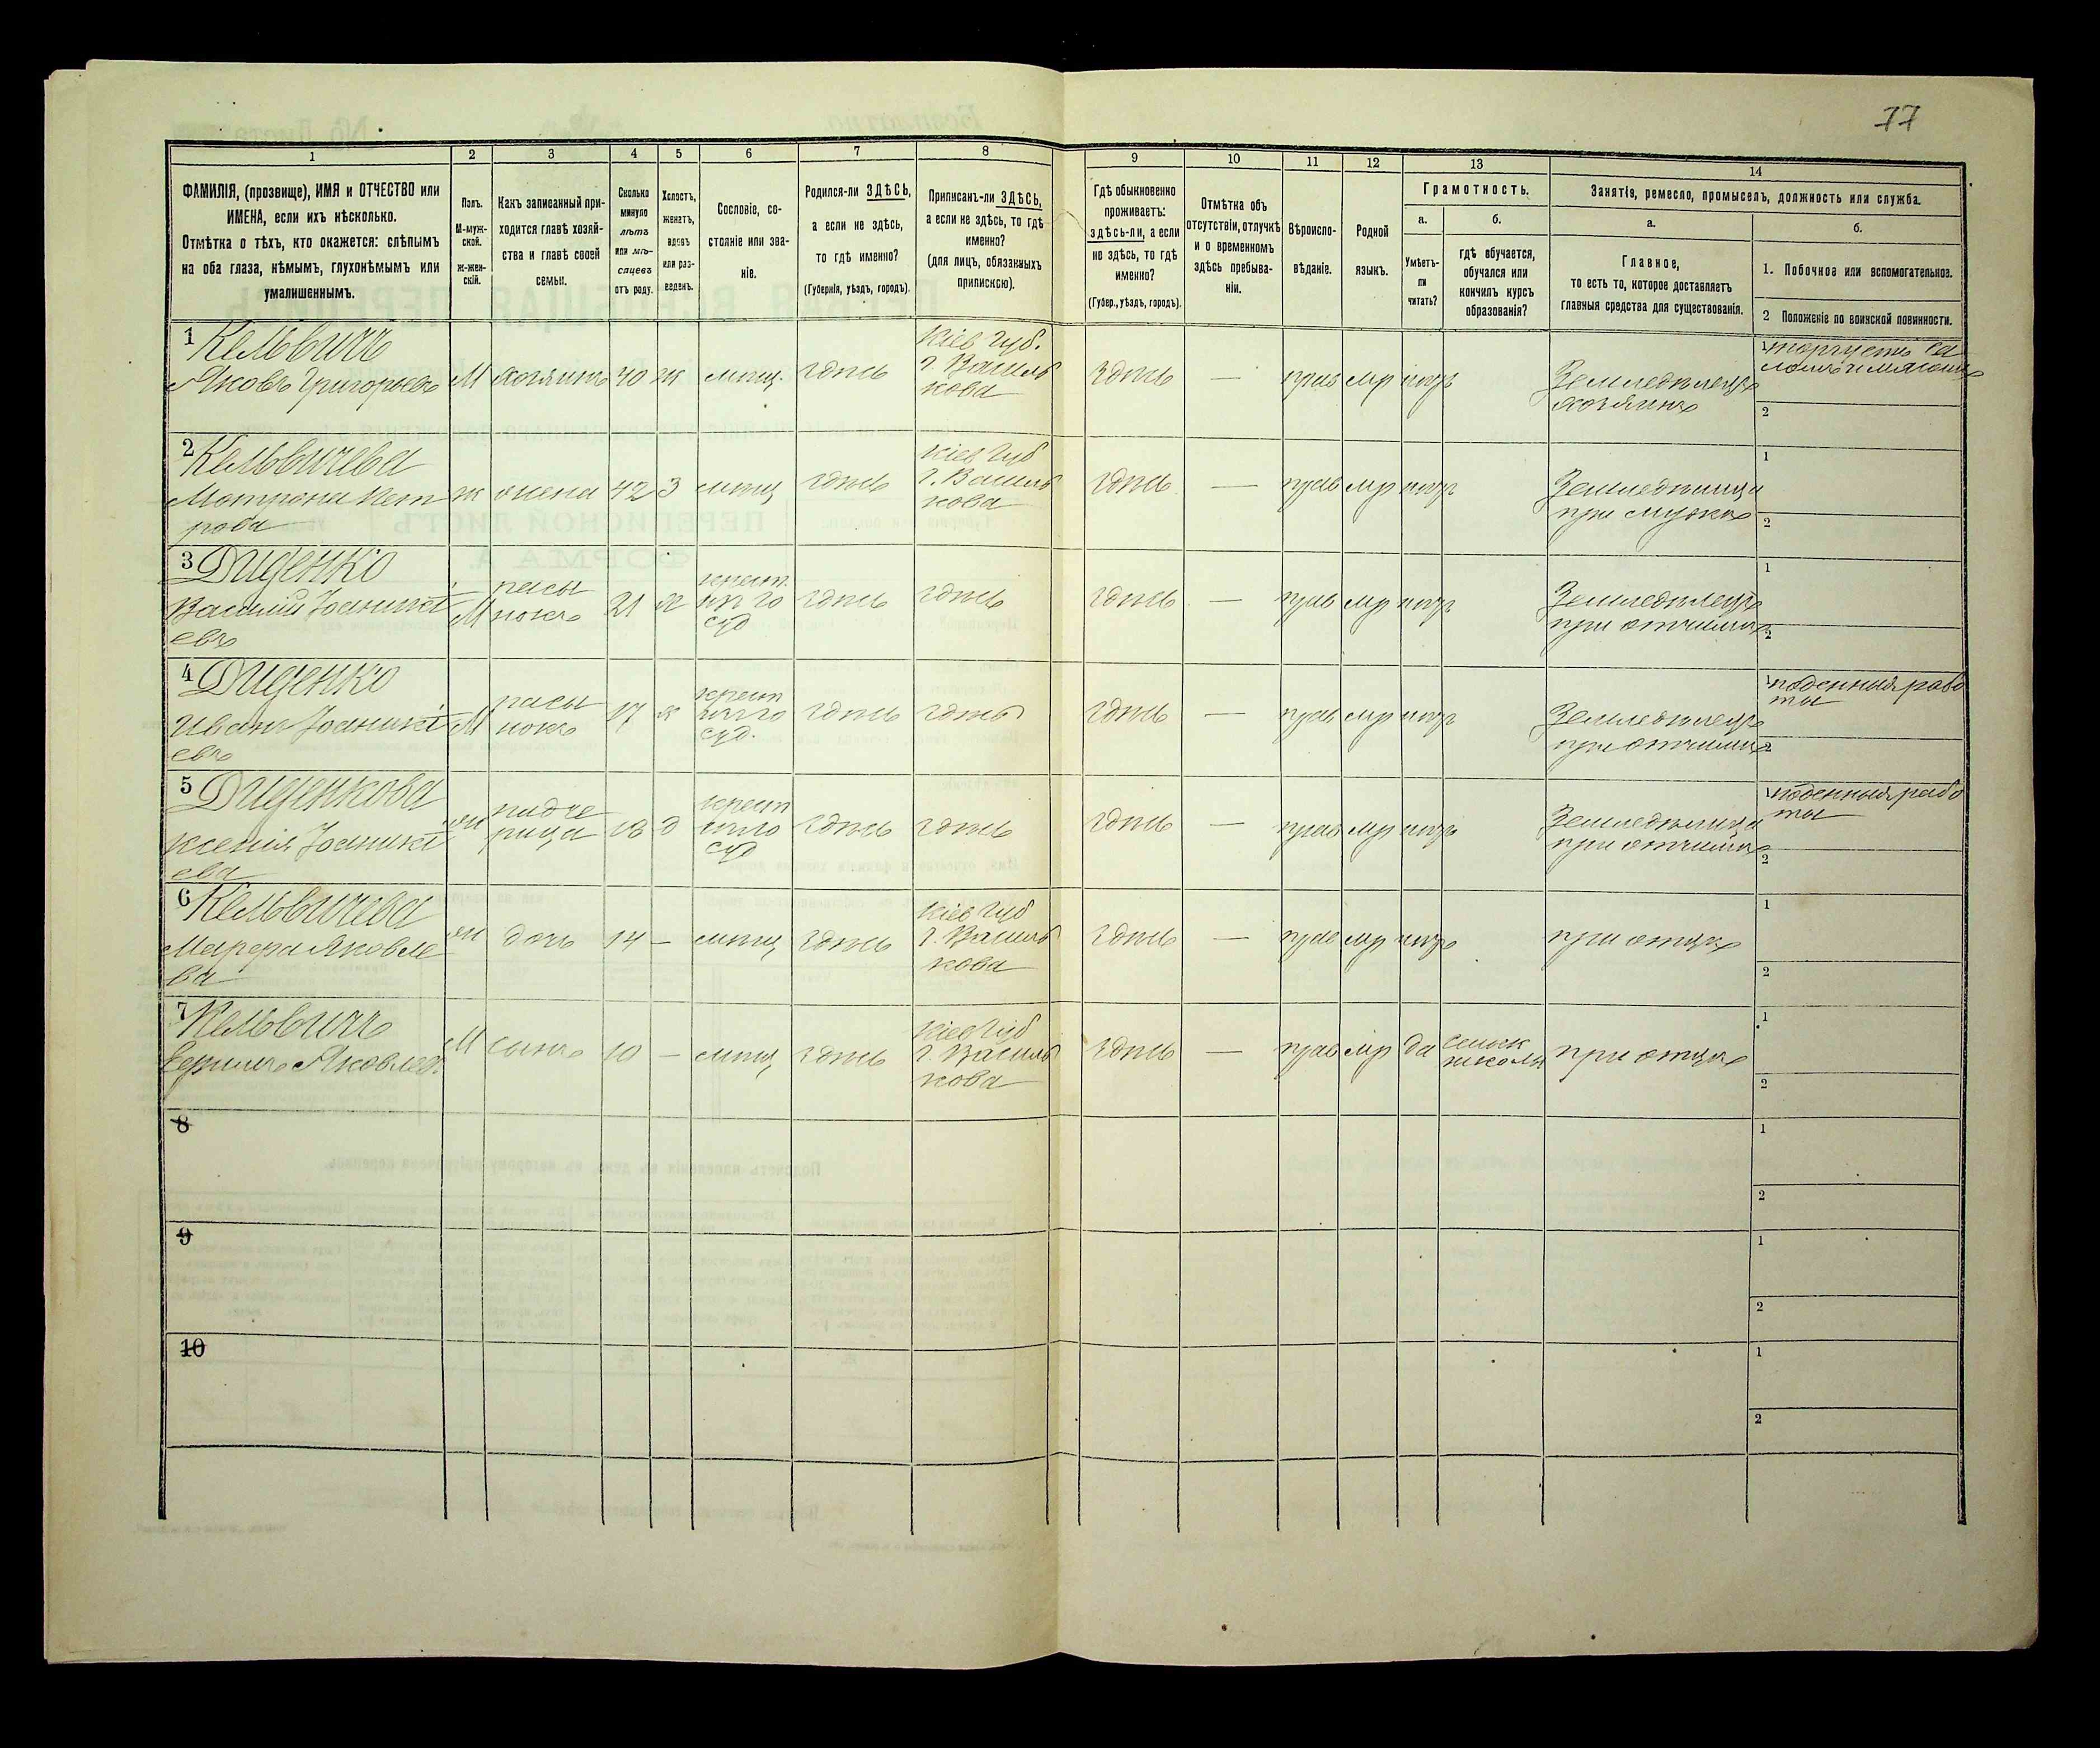 77
1
2
3
4
5
6
7
8
9
10
11
12
13
14
ФАМИЛІЯ, (прозвище), ИМЯ и ОТЧЕСТВО или
ИМЕНА, если ихъ нѣсколько.
Отмѣтка о тѣхъ, кто окажется: слѣпымъ
на оба глаза, нѣмымъ, глухонѣмымъ или
умалишеннымъ.
Полъ.
М-муж-
ской.
ж-жен-
скій.
Какъ записанный при-
ходится главѣ хозяй-
ства и главѣ своей
семьи.
Сколько
минуло
лѣтъ
или мѣ-
сяцевъ
отъ роду.
Холостъ,
женатъ,
вдовъ
или раз-
веденъ.
Сословіе, со-
стояніе или зва-
ніе.
Родился-ли ЗДѢСЬ,
а если не здѣсь,
то гдѣ именно?
(Губернія, уѣздъ, городъ).
Приписанъ-ли ЗДѢСЬ,
а если не здѣсь, то гдѣ
именно?
(для лицъ, обязанныхъ
припискою).
Гдѣ обыкновенно
проживаетъ:
здѣсь-ли, а если
не здѣсь, то гдѣ
именно?
(Губер., уѣздъ, городъ).
Отмѣтка объ
отсутствіи, отлучкѣ
и о временномъ
здѣсь пребыва-
ніи.
Вѣроиспо-
вѣданіе.
Родной
языкъ.
Грамотность.
а.
Умѣетъ-
ли
читать?
б.
гдѣ обучается,
обучался или
кончилъ курсъ
образованія?
Занятія, ремесло, промыселъ, должность или служба.
а.
Главное,
то есть то, которое доставляетъ
главныя средства для существованія.
б.
1. Побочное или вспомогательное.
2 Положеніе по воинской повинности.
1 Кельвичъ
Яковъ Григорьевъ
М хозяинъ 40 ж мѣщ. здѣсь
Кіев Губ.
г. Василь
кова
здѣсь — прав мр нѣтъ
Земледѣлецъ
хозяинъ
1 торгуетъ са
ломъ и мясомъ
2
2 Кельвичева
Мотрона Пет
рова
ж жена 42 З мѣщ здѣсь
Кіев Губ
г. Василь
кова
здѣсь — прав мр нѣтъ
Земледѣлица
при мужѣ
1
2
3 Диденко
Василій Іоаникі
евъ
М пасы
нокъ
21 х
крест.
из го
суд
здѣсь здѣсь здѣсь — прав мр нѣтъ
Земледѣлецъ
при отчимѣ
1
2
4 Диденко
Иванъ Іоаникі
евъ
М пасы
нокъ
17 х
крест
из го
суд.
здѣсь здѣсь здѣсь — прав мр нѣтъ
Земледѣлецъ
при отчимѣ
1 поденныя рабо
ты
2
5 Диденкова
Ксенія Іоаникі
ева
ж падче
рица
д
крест
из го
суд
здѣсь здѣсь здѣсь — прав мр нѣтъ
Земледѣлица
при отчимѣ
1 поденныя рабо
ты
2
6 Кельвичева
Марфа Яковле
ва
ж дочь 14 — мѣщ здѣсь
Кіев Губ
г. Василь
кова
здѣсь — прав мр нѣтъ
при отцѣ
1
2
7 Кельвичъ
Яковлев
М сынъ 10 — мѣщ здѣсь
Кіев Губ
г. Василь
кова
здѣсь — прав мр да
сельск
школы
при отцѣ
1
2
8
1
2
9
1
2
10
1
2